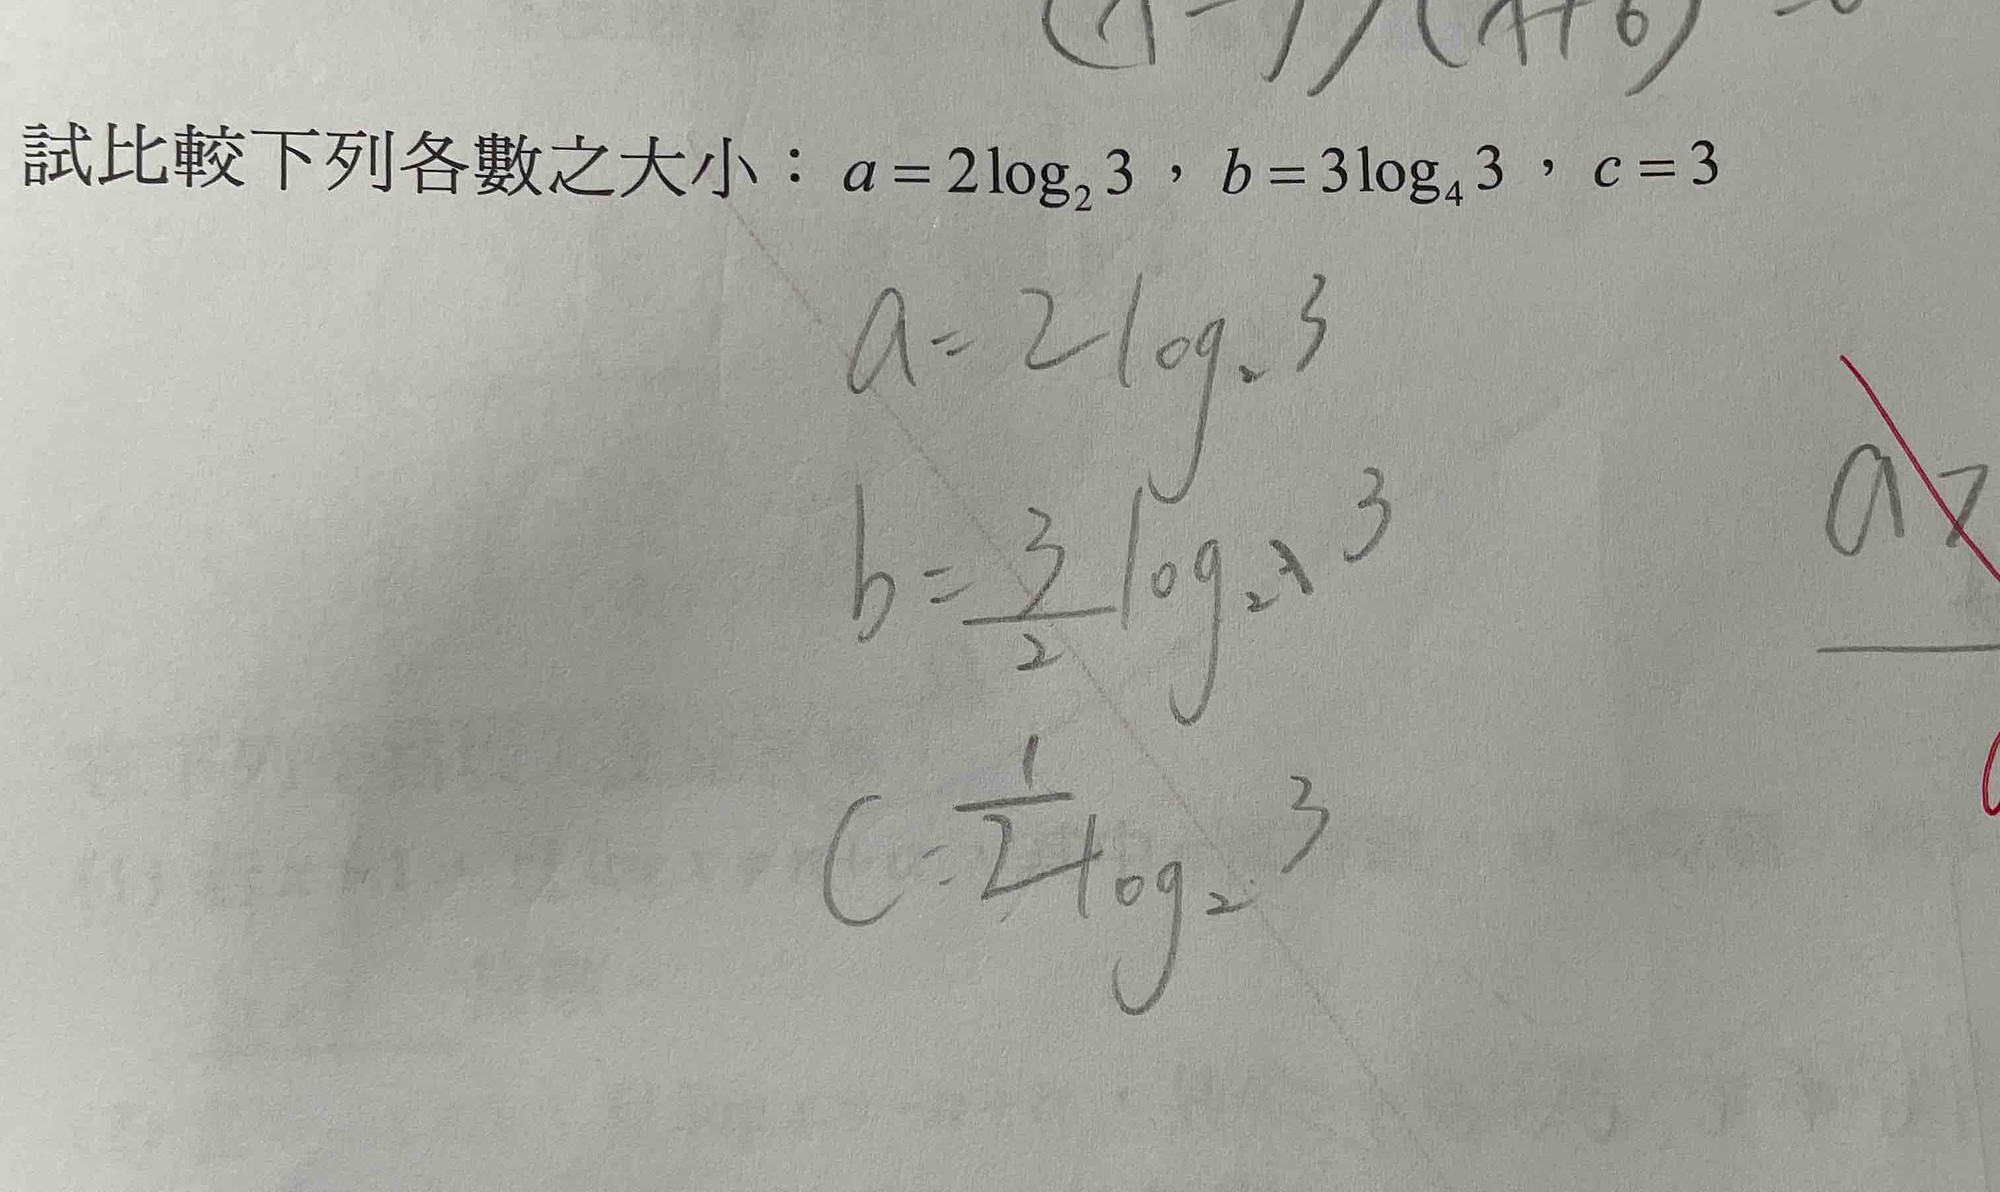 試比較下列各數之大小：a = 2log₂3，b = 3log₄3，c = 3
a = 2log₂3
b = 3/2 log₂3
a >
c = 1/2 log₂3